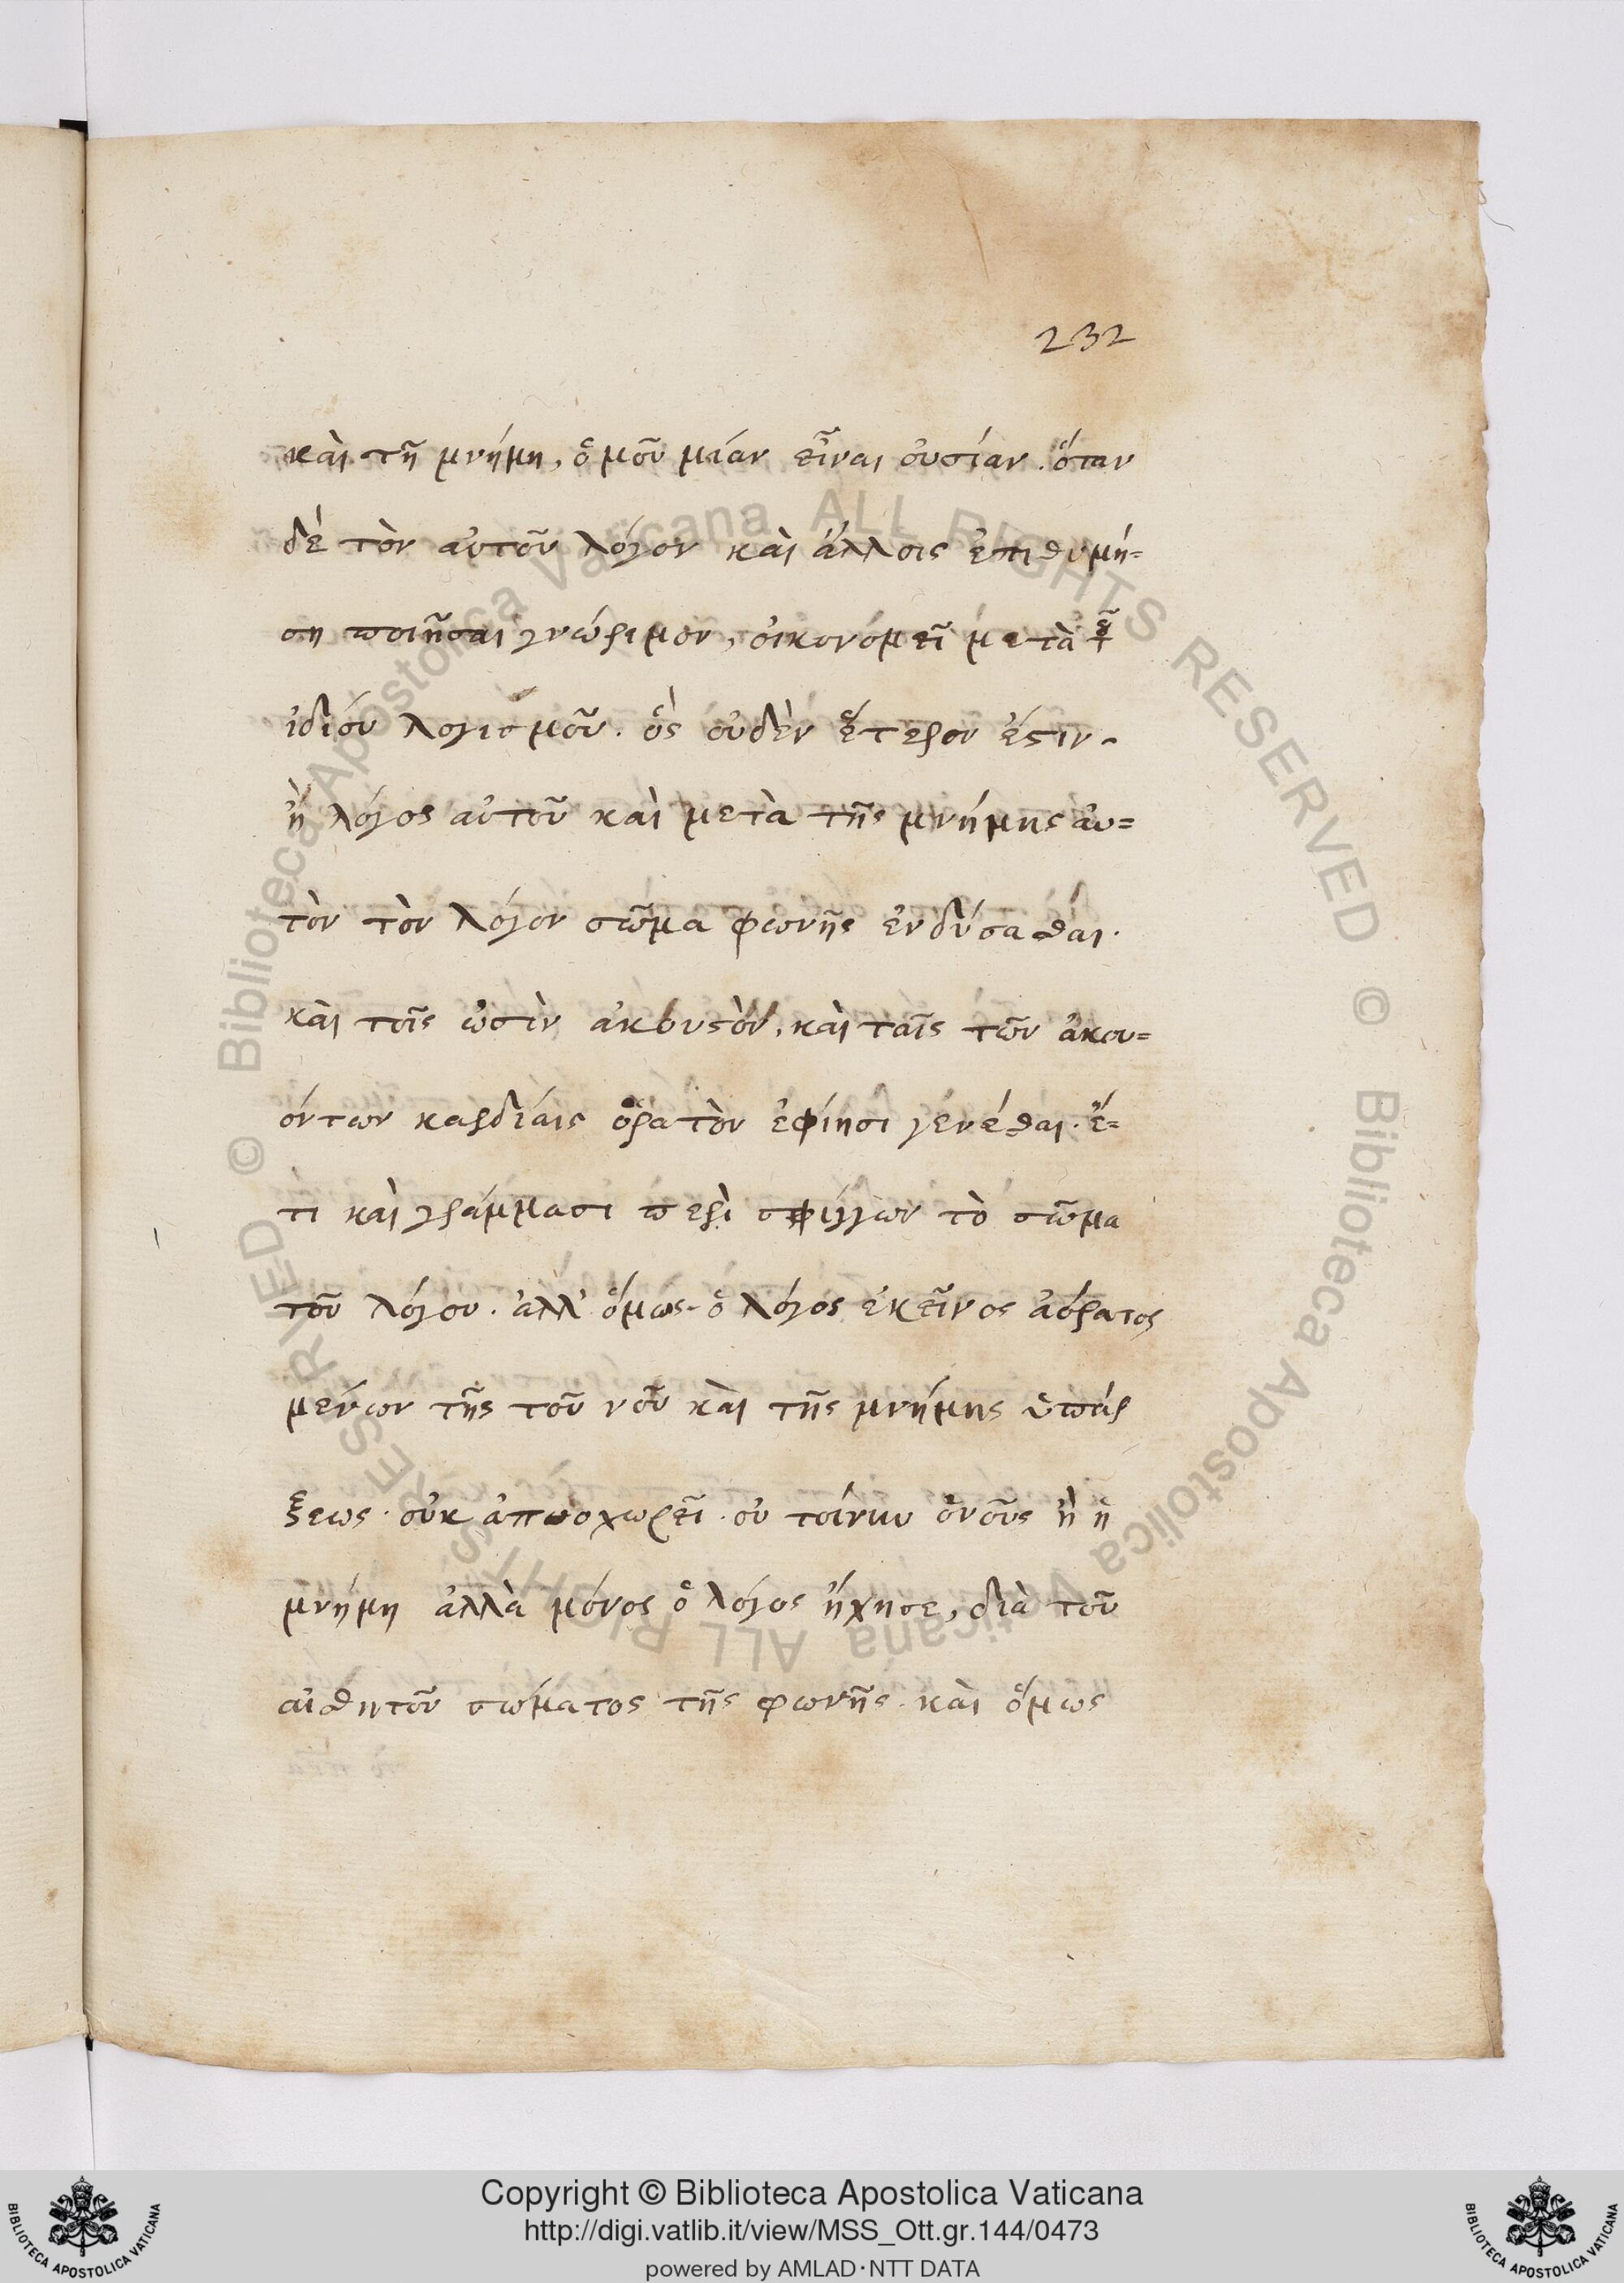 232
καὶ τῆ μνήμη, ὁμοῦ μίαν εἶναι οὐσίαν. ὅταν
δὲ τὸν αὐτοῦ λόγον καὶ ἄλλοις ἐπιθυμή=
ση ποιῆσαι γνώριμον, οἰκονομεῖ μετὰ τοῦ
ἰδίου λογισμοῦ. ὃς οὐδὲν ἕτερον ἐστιν.
ἢ λόγος αὐτοῦ καὶ μετὰ τῆς μνήμης αὐ=
τὸν τὸν λόγον σῶμα φωνῆς ἐνδύσασθαι.
καὶ τοῖς ὠσὶν ἀκουστὸν, καὶ ταῖς τῶν ἀκου=
όντων καρδίαις ὁρατὸν ἐφίησι γενέσθαι. ἔ=
τι καὶ γράμμασι περὶ σφίγγων τὸ σῶμα
τοῦ λόγου. ἀλλ' ὅμως ὁ λόγος ἐκεῖνος ἀόρατος
μένων τῆς τοῦ νοῦ καὶ τῆς μνήμης ὑπάρ
ξεως. οὐκ ἀποχωρεῖ. οὐ τοίνυν ὁ νοῦς ἢ ἡ
μνήμη ἀλλὰ μόνος ὁ λόγος ἤχησε, διὰ τοῦ
αἰσθητοῦ σώματος τῆς φωνῆς. καὶ ὅμως
Biblioteca Apostolica Vaticana ALL RIGHTS RESERVED ©
Biblioteca Apostolica Vaticana ALL RIGHTS RESERVED ©
BIBLIOTECA APOSTOLICA VATICANA
Copyright © Biblioteca Apostolica Vaticana
http://digi.vatlib.it/view/MSS_Ott.gr.144/0473
powered by AMLAD·NTT DATA
BIBLIOTECA APOSTOLICA VATICANA